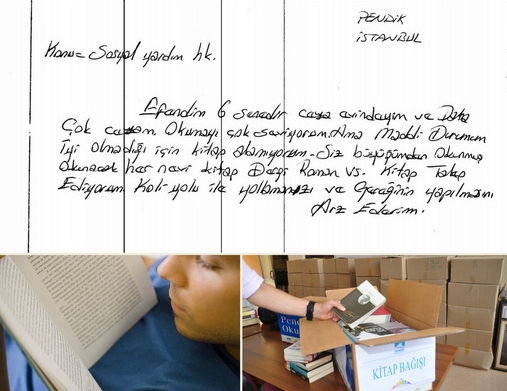 PENDİK
İSTANBUL
Konu= Sosyal yardım hk.
Efendim 6 senedir ceza evindeyim ve Daha
Çok cezam Okumayı çok seviyorum. Ama Maddi Durumum
İyi olmadığı için kitap alamıyorum. Siz büyüğümden Okunmuş
Okunacak her nevi kitap Dergi Roman VS. Kitap Talep
Ediyorum Koli yolu ile yollamanızı ve Gereğinin yapılmasını
Arz Ederim.
Pend
Oku
KİTAP BAĞIŞI